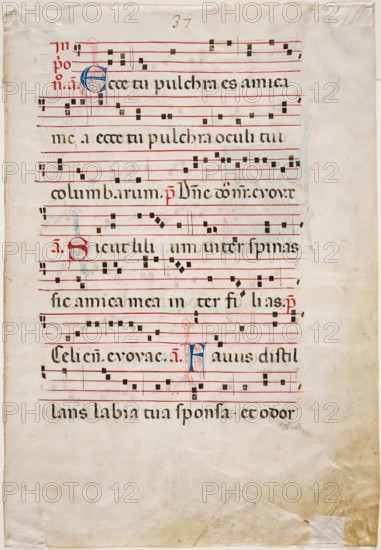 37
In p̃o
n̄. ā. Ecce tu pulchra es amica
me a ecce tu pulchra oculi tui
columbarum. p̃ Dñe
ā. Sicut lili um inter spinas
sic amica mea in ter fi lias. p̃
Celi en̄. evovae. ā. Favus distil
lans labia tua sponsa et odor
PHOTO12